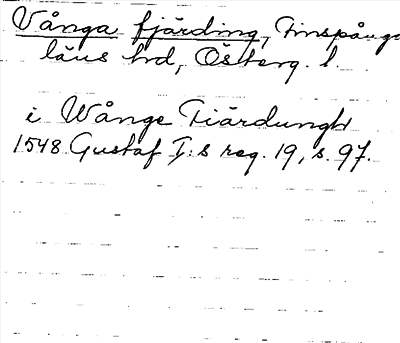 Vånga fjärding, Finspånga
läns hd, Österg. l.
i Wånge Fiärdungh
1548 Gustaf I:s reg. 19, s. 97.